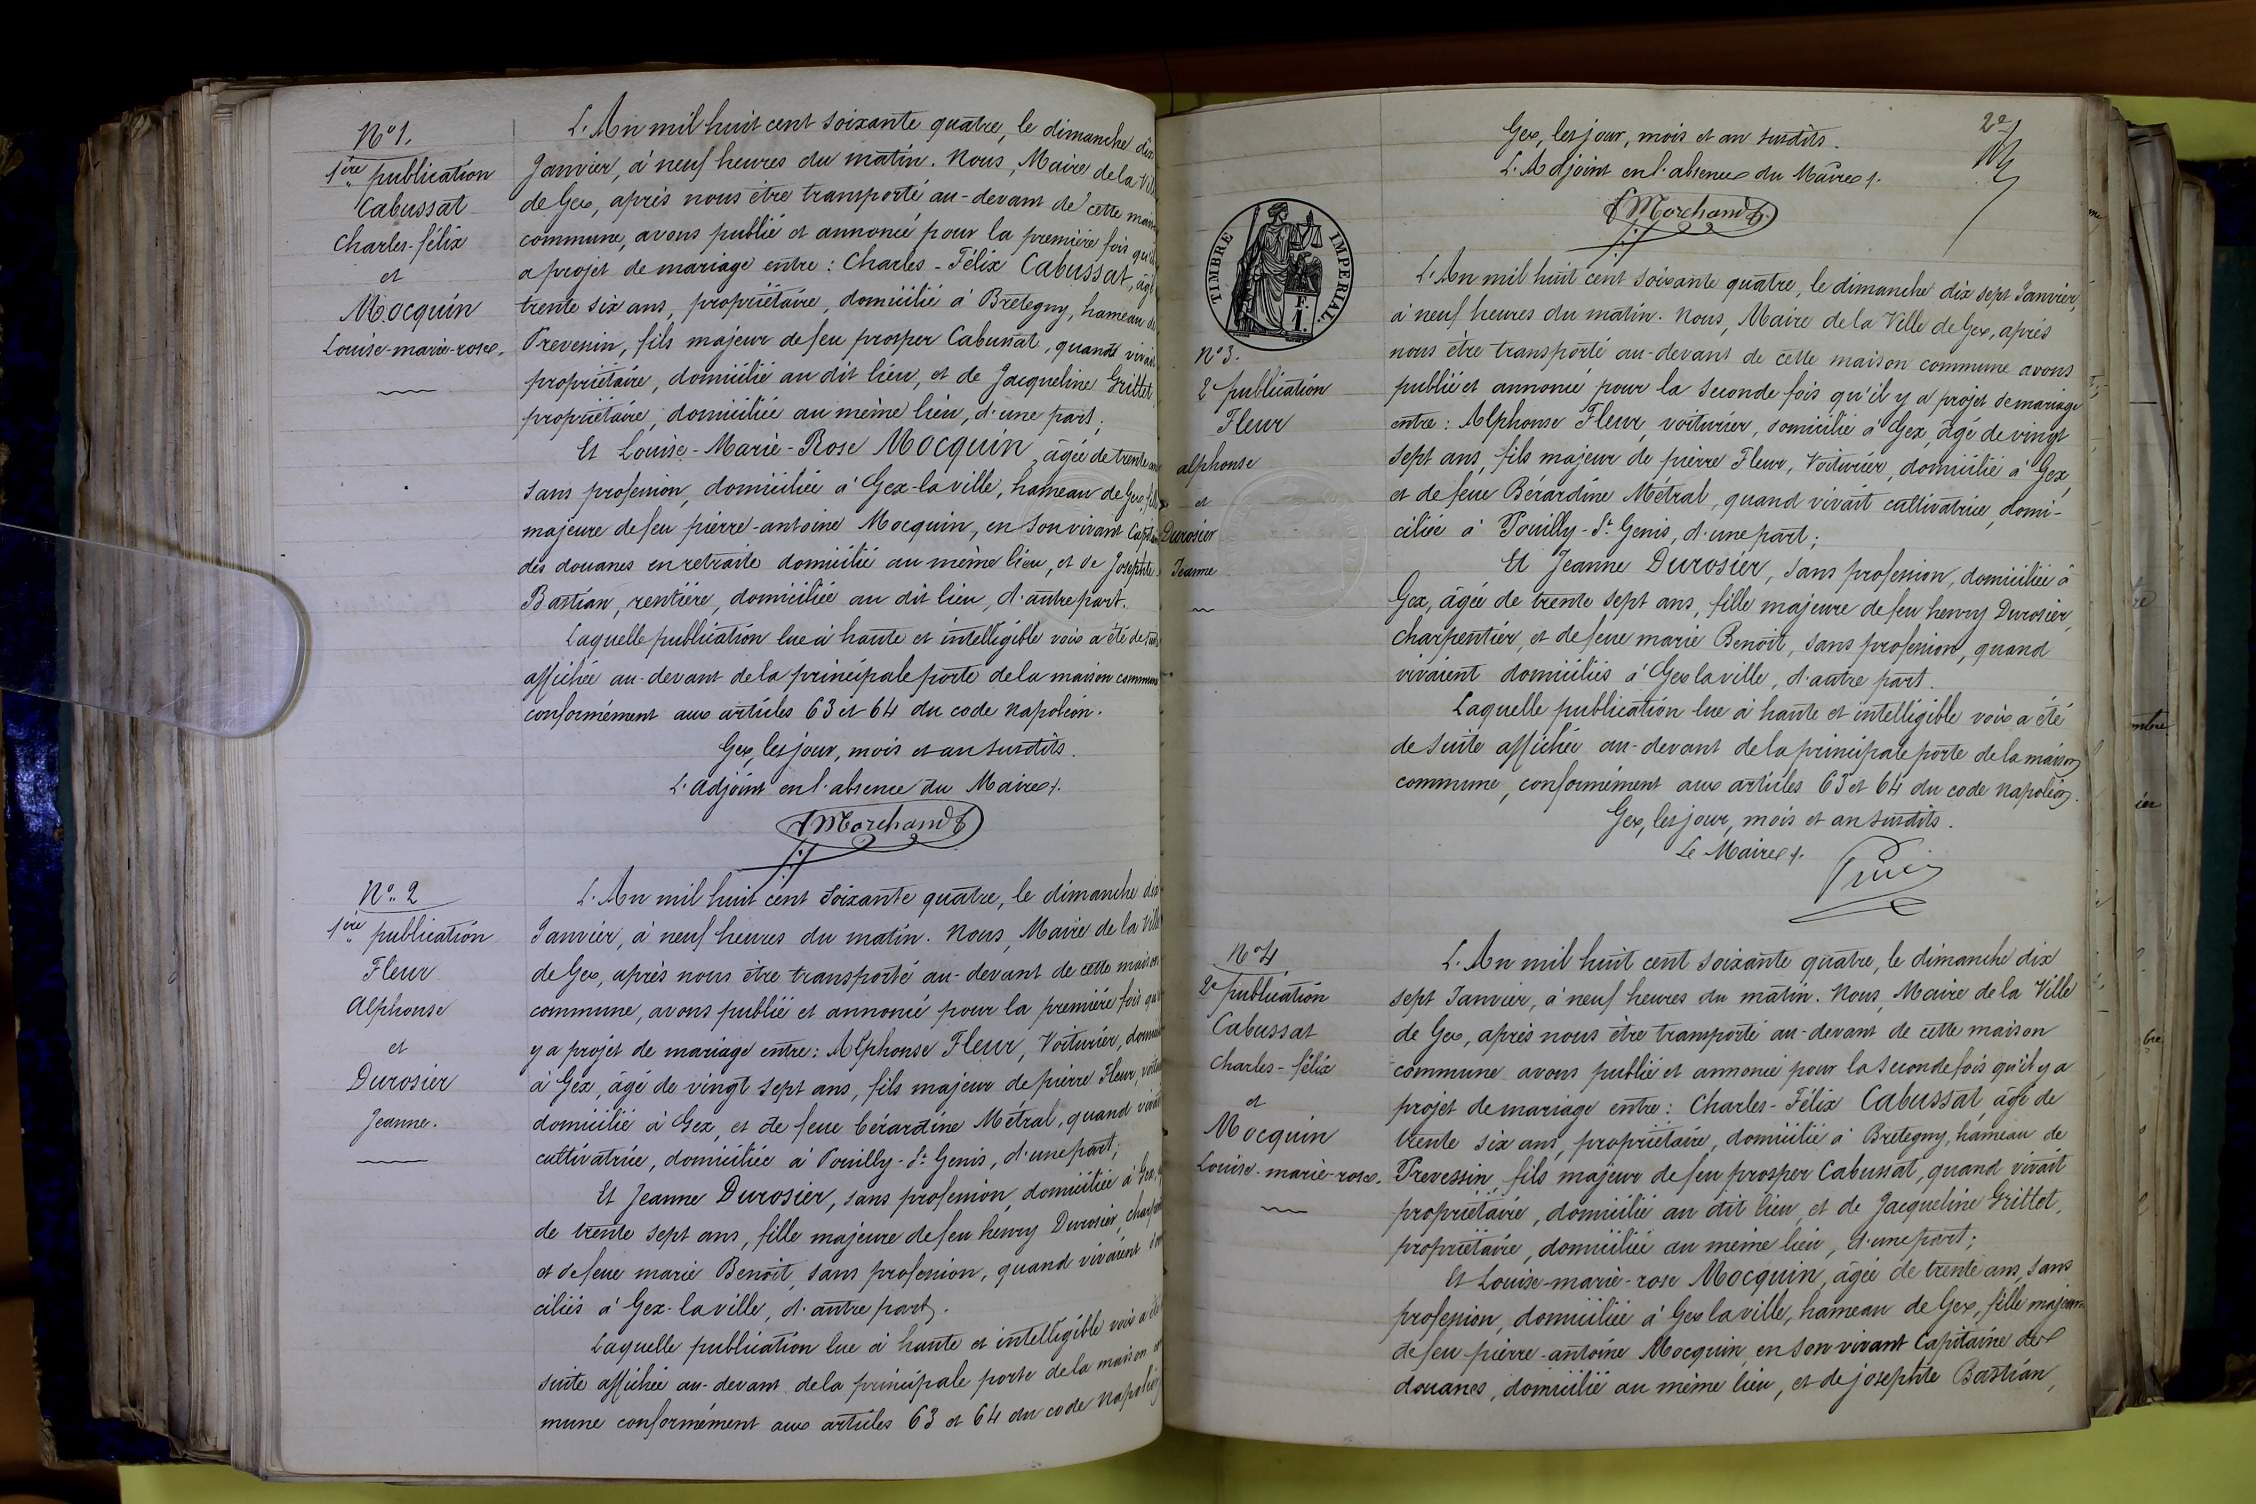 N° 1.
1ère publication
Cabussat
Charles-félix
et
Mocquin
Louise-marie-rose.
L'An mil huit cent soixante quatre, le dimanche dix
Janvier, à neuf heures du matin. Nous, Maire de la Vil
de Gex, après nous être transporté au-devant de cette mais
commune, avons publié et annoncé pour la première fois qu'il
a projet de mariage entre : Charles-Félix Cabussat, âgé
trente six ans, propriétaire, domicilié à Bretegny, hameau de
Prevenin, fils majeur de feu prosper Cabussat, quand vivait
propriétaire, domicilié au dit lieu, et de Jacqueline Grittet
propriétaire, domiciliée au même lieu, d'une part ;
Et Louise-Marie-Rose Mocquin, âgée de trente ans
sans profession, domiciliée à Gex-la ville, hameau de Gex, fille
majeure de feu pierre-antoine Mocquin, en son vivant Capitaine
des douanes en retraite domicilié au même lieu, et de Josephte
Bastian, rentière, domiciliée au dit lieu, d'autre part.
Laquelle publication lue à haute et intelligible voix a été de suite
affichée au-devant de la principale porte de la maison commune
conformément aux articles 63 et 64 du code napoléon.
Gex, les jour, mois et an susdits.
L'adjoint en l'absence du Maire.
Morchand
N° 2
1ère publication
Fleur
Alphonse
et
Durosier
Jeanne.
L'An mil huit cent soixante quatre, le dimanche dix
Janvier, à neuf heures du matin. Nous, Maire de la Ville
de Gex, après nous être transporté au-devant de cette maison
commune, avons publié et annoncé pour la première fois qu'il
y a projet de mariage entre : Alphonse Fleur, Voiturier, domicilié
à Gex, âgé de vingt sept ans, fils majeur de pierre Fleur, voitu
domicilié à Gex, et de feue bérardine Métral, quand vivait
cultivatrice, domiciliée à Pouilly-St Genis, d'une part ;
Et Jeanne Durosier, sans profession, domiciliée à Gex,
de trente sept ans, fille majeure de feu henry Durosier, charpen
et de feue marie Benoit, sans profession, quand vivaient dom
ciliés à Gex-la ville, d'autre part.
Laquelle publication lue à haute et intelligible voix a été
suite affichée au-devant de la principale porte de la maison
mune conformément aux articles 63 et 64 du code napoléon
2e
Gex, les jour, mois et an susdits.
L'Adjoint en l'absence du Maire.
Morchand
TIMBRE IMPERIAL
N° 3.
2e publication
Fleur
alphonse
et
Durosier
Jeanne
L'An mil huit cent soixante quatre, le dimanche dix sept Janvier,
à neuf heures du matin. Nous, Maire de la Ville de Gex, après
nous être transporté au-devant de cette maison commune avons
publié et annoncé pour la seconde fois qu'il y a projet de mariage
entre : Alphonse Fleur, voiturier, domicilié à Gex, âgé de vingt
sept ans, fils majeur de pierre Fleur, Voiturier, domicilié à Gex,
et de feue Bérardine Métral, quand vivait cultivatrice, domi-
ciliée à Pouilly-St Genis, d'une part ;
Et Jeanne Durosier, sans profession, domiciliée à
Gex, âgée de trente sept ans, fille majeure de feu henry Durosier,
charpentier, et de feue marie Benoit, sans profession, quand
vivaient domiciliés à Gex la ville, d'autre part.
Laquelle publication lue à haute et intelligible voix a été
de suite affichée au-devant de la principale porte de la maison
commune, conformément aux articles 63 et 64 du code napoléon.
Gex, les jour, mois et an susdits.
Le Maire.
N° 4
2e publication
Cabussat
Charles-félix
et
Mocquin
Louise-marie-rose.
L'An mil huit cent soixante quatre, le dimanche dix
sept Janvier, à neuf heures du matin. Nous, Maire de la Ville
de Gex, après nous être transporté au-devant de cette maison
commune avons publié et annoncé pour la seconde fois qu'il y a
projet de mariage entre : Charles-Félix Cabussat, âgé de
trente six ans, propriétaire, domicilié à Bretegny, hameau de
Prevessin, fils majeur de feu prosper Cabussat, quand vivait
propriétaire, domicilié au dit lieu, et de Jacqueline Grittet,
propriétaire, domiciliée au même lieu, d'une part ;
Et Louise-marie-rose Mocquin, âgée de trente ans, sans
profession, domiciliée à Gex la ville, hameau de Gex, fille majeure
de feu pierre-antoine Mocquin, en son vivant Capitaine des
douanes, domicilié au même lieu, et de josephte Bastian,